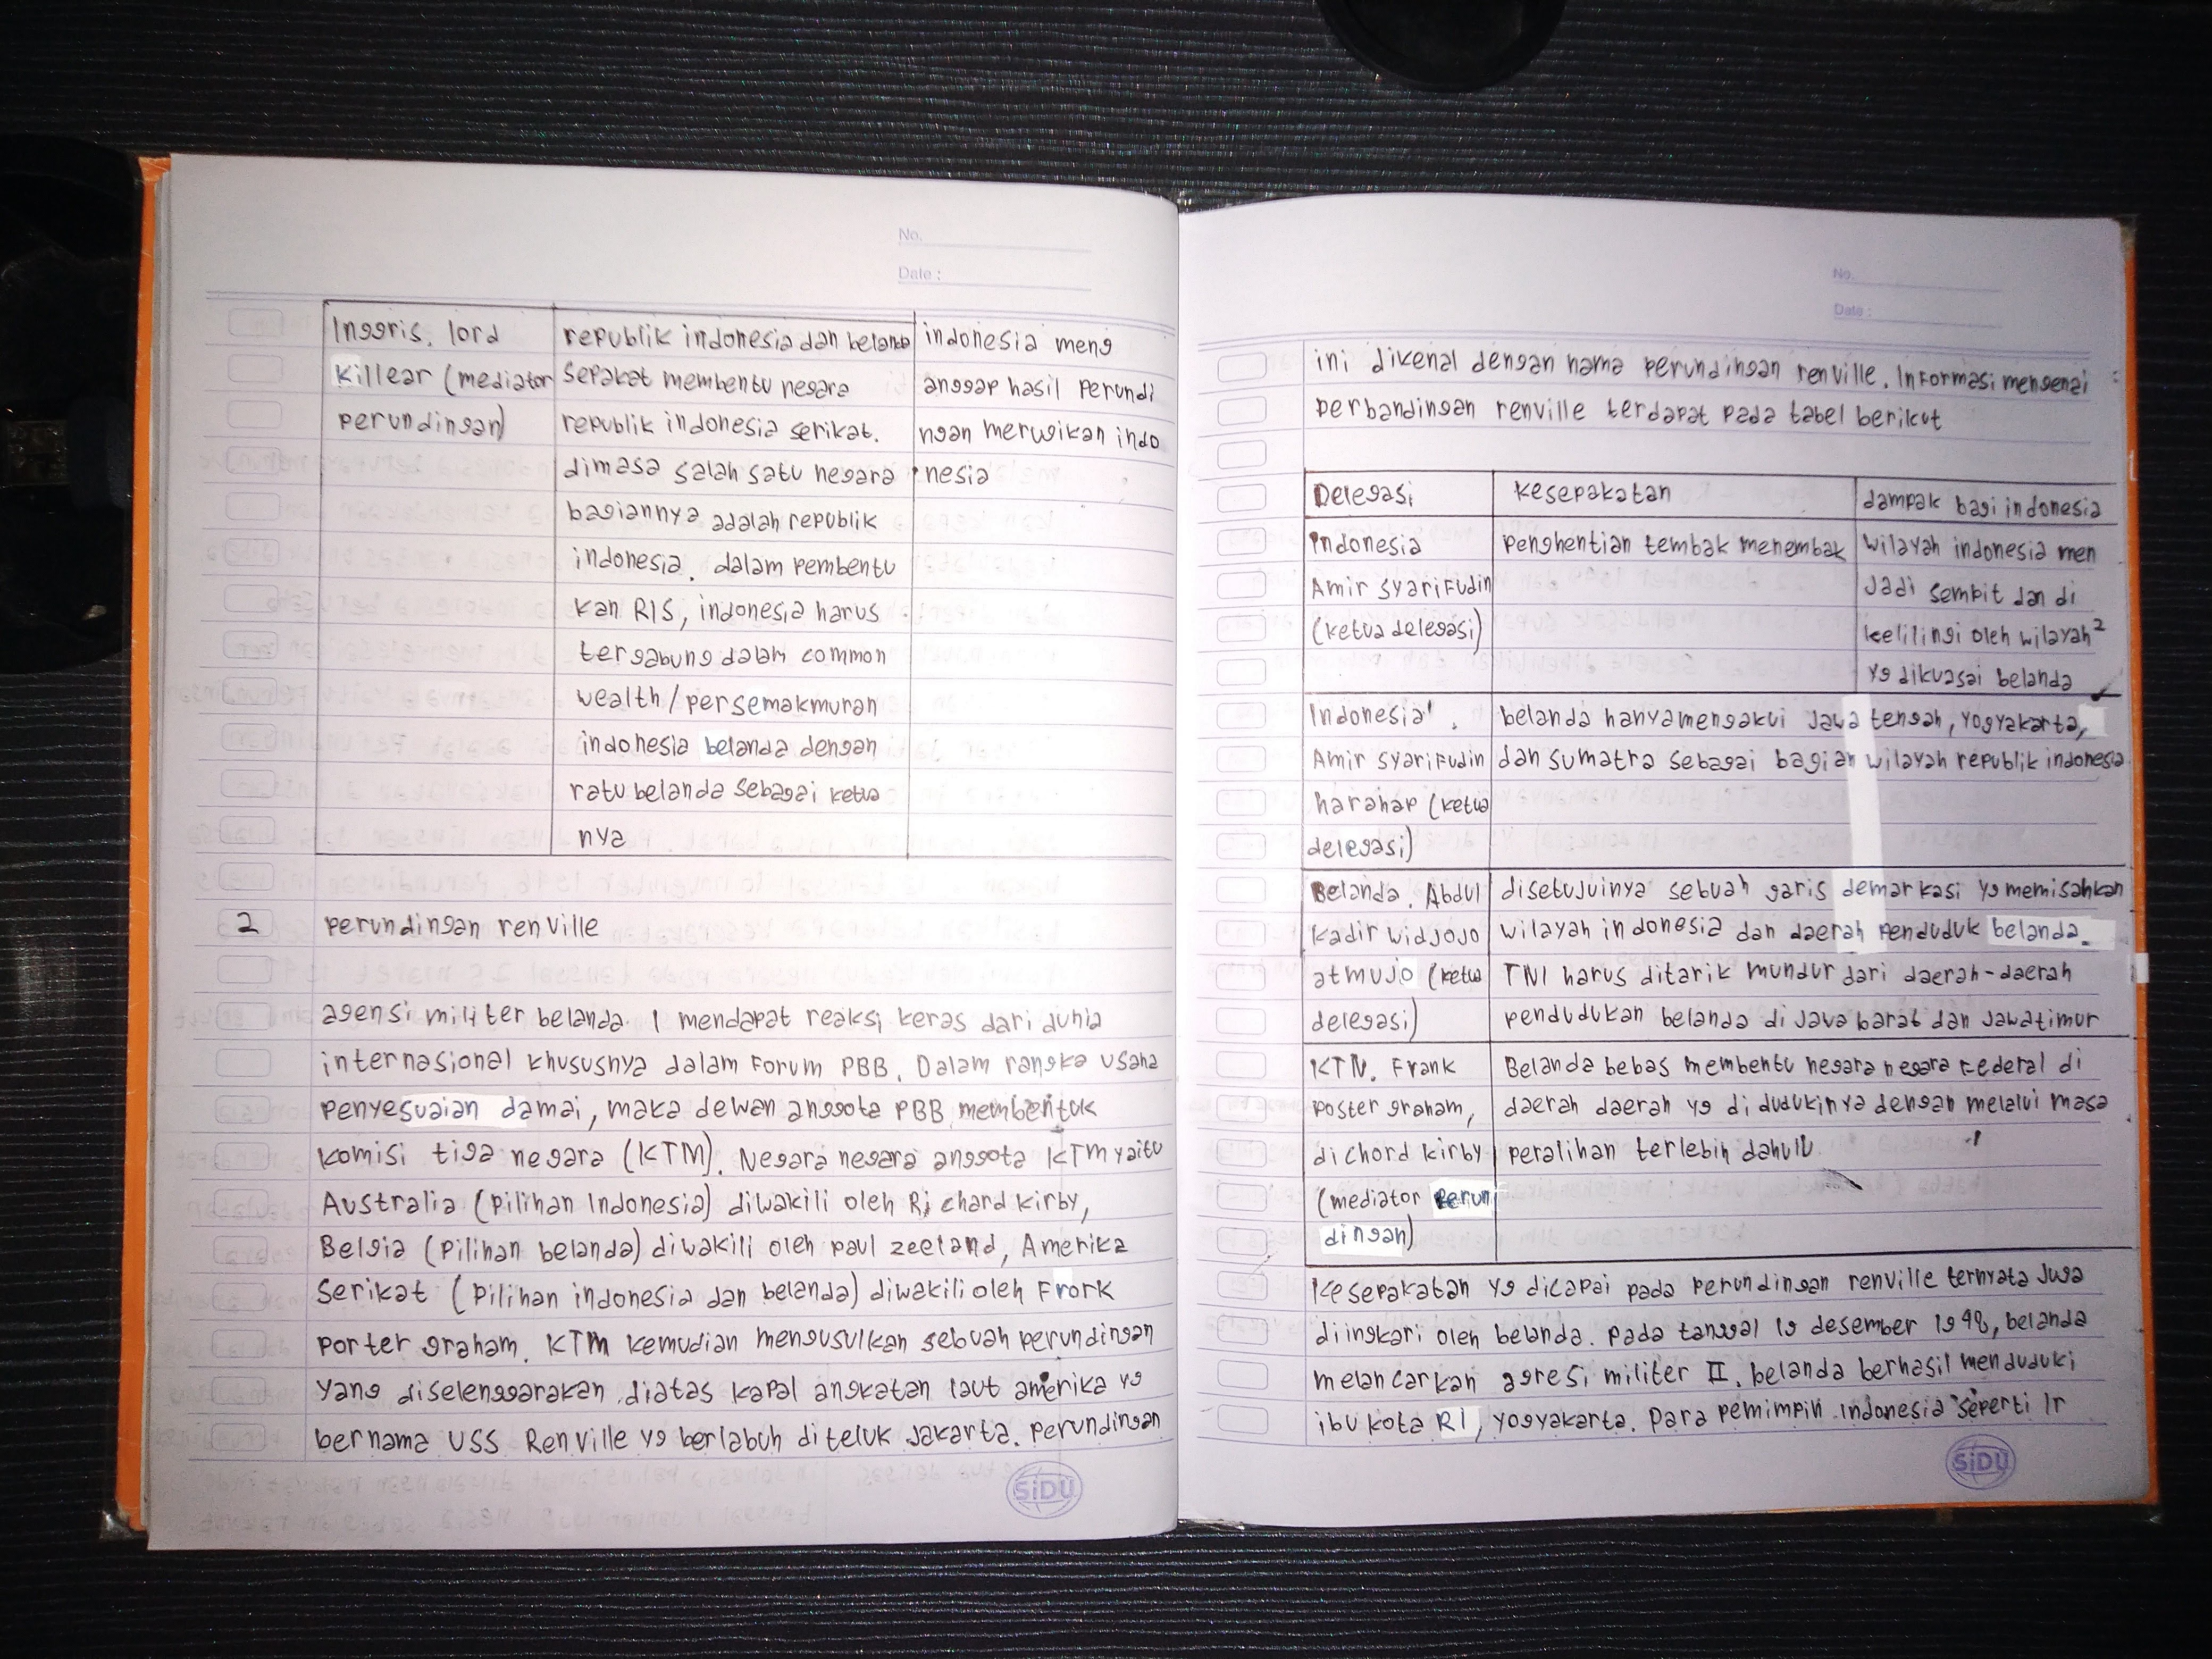 No.
Date :
Inggris. lord
killear (mediator
perundingan)
republik indonesia dan belanda
sepakat membentu negara
republik indonesia serikat.
dimasa salah satu negara
bagiannya adalah republik
indonesia. dalam pembentu
kan RIS, indonesia harus
tergabung dalam common
wealth/persemakmuran
indonesia belanda dengan
ratu belanda sebagai ketua
nya
indonesia meng
anggap hasil perundi
ngan merugikan indo
nesia
2 perundingan renville
agensi militer belanda 1 mendapat reaksi keras dari dunia
internasional khususnya dalam forum PBB. Dalam rangka usaha
penyesuaian damai, maka dewan anggota PBB membentuk
komisi tiga negara (KTM). Negara negara anggota KTM yaitu
Australia (pilihan Indonesia) diwakili oleh Ri chard kirby,
Belgia (pilihan belanda) diwakili oleh paul zeeland, Amerika
serikat (pilihan indonesia dan belanda) diwakili oleh Frork
porter graham. KTM kemudian mengusulkan sebuah perundingan
yang diselenggarakan diatas kapal angkatan laut amerika yg
bernama USS Renville yg berlabuh di teluk jakarta. perundingan
SiDU
No.
Date :
ini dikenal dengan nama perundingan renville. Informasi mengenai
perbandingan renville terdapat pada tabel berikut
Delegasi
kesepakatan
dampak bagi indonesia
Indonesia
Amir syarifudin
(ketua delegasi)
penghentian tembak menembak
wilayah indonesia men
jadi sempit dan di
kelilingi oleh wilayah²
yg dikuasai belanda
Indonesia.
Amir syarifudin
harahap (ketua
delegasi)
belanda hanya mengakui jawa tengah, yogyakarta,
dan sumatra sebagai bagian wilayah republik indonesia
Belanda. Abdul
kadir widjojo
atmujo (ketua
delegasi)
disetujuinya sebuah garis demarkasi yg memisahkan
wilayah indonesia dan daerah penduduk belanda.
TNI harus ditarik mundur dari daerah-daerah
pendudukan belanda di java barat dan jawa timur
KTN. Frank
poster graham,
dichord kirby
(mediator perun
dingan)
Belanda bebas membentu negara negara federal di
daerah daerah yg di dudukinya dengan melalui masa
peralihan terlebih dahulu
kesepakatan yg dicapai pada perundingan renville ternyata juga
diingkari oleh belanda. pada tanggal 19 desember 1948, belanda
melancarkan agresi militer II. belanda berhasil menduduki
ibu kota RI, yogyakarta. para pemimpin indonesia seperti Ir
SiDU